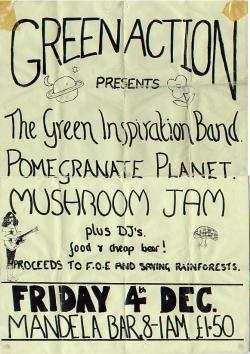 GREEN ACTION
PRESENTS
The Green Inspiration Band.
POMEGRANATE PLANET.
MUSHROOM JAM
plus DJ's.
food & cheap beer!
PROCEEDS TO F.O.E AND SAVING RAINFORESTS.
FRIDAY 4th DEC.
MANDELA BAR. 8-1AM £1.50